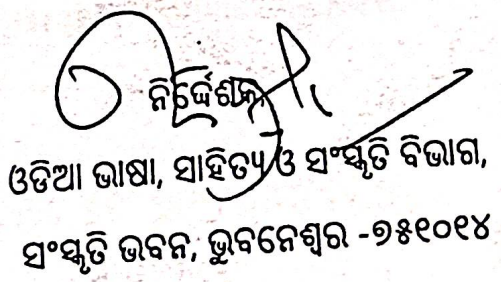 ନିର୍ଦ୍ଦେଶକ
ଓଡିଆ ଭାଷା, ସାହିତ୍ୟ ଓ ସଂସ୍କୃତି ବିଭାଗ,
ସଂସ୍କୃତି ଭବନ, ଭୁବନେଶ୍ୱର -୭୫୧୦୧୪